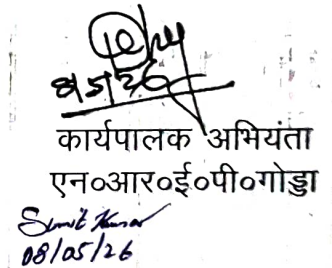 कार्यपालक अभियंता
एन०आर०ई०पी०गोड्डा
Sumit Kumar
08/05/26